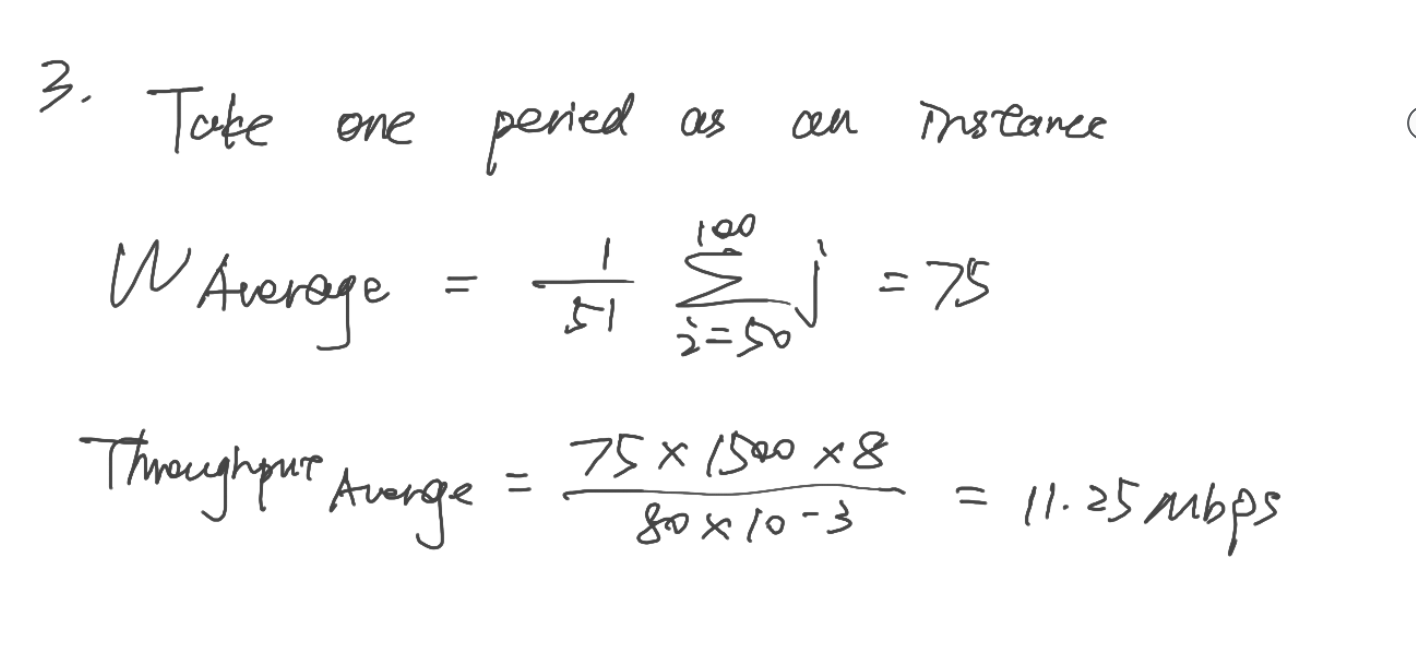 3. Take one peried as an instance
W Average = 1/51 100 Σ i=50 j = 75
Throughput Average = 75 × 1500 × 8 / 80 × 10 -3 = 11.25 Mbps